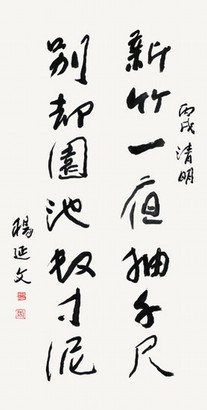 丙戌清明
新竹一夜抽千尺
别却園池数寸泥
楊延文